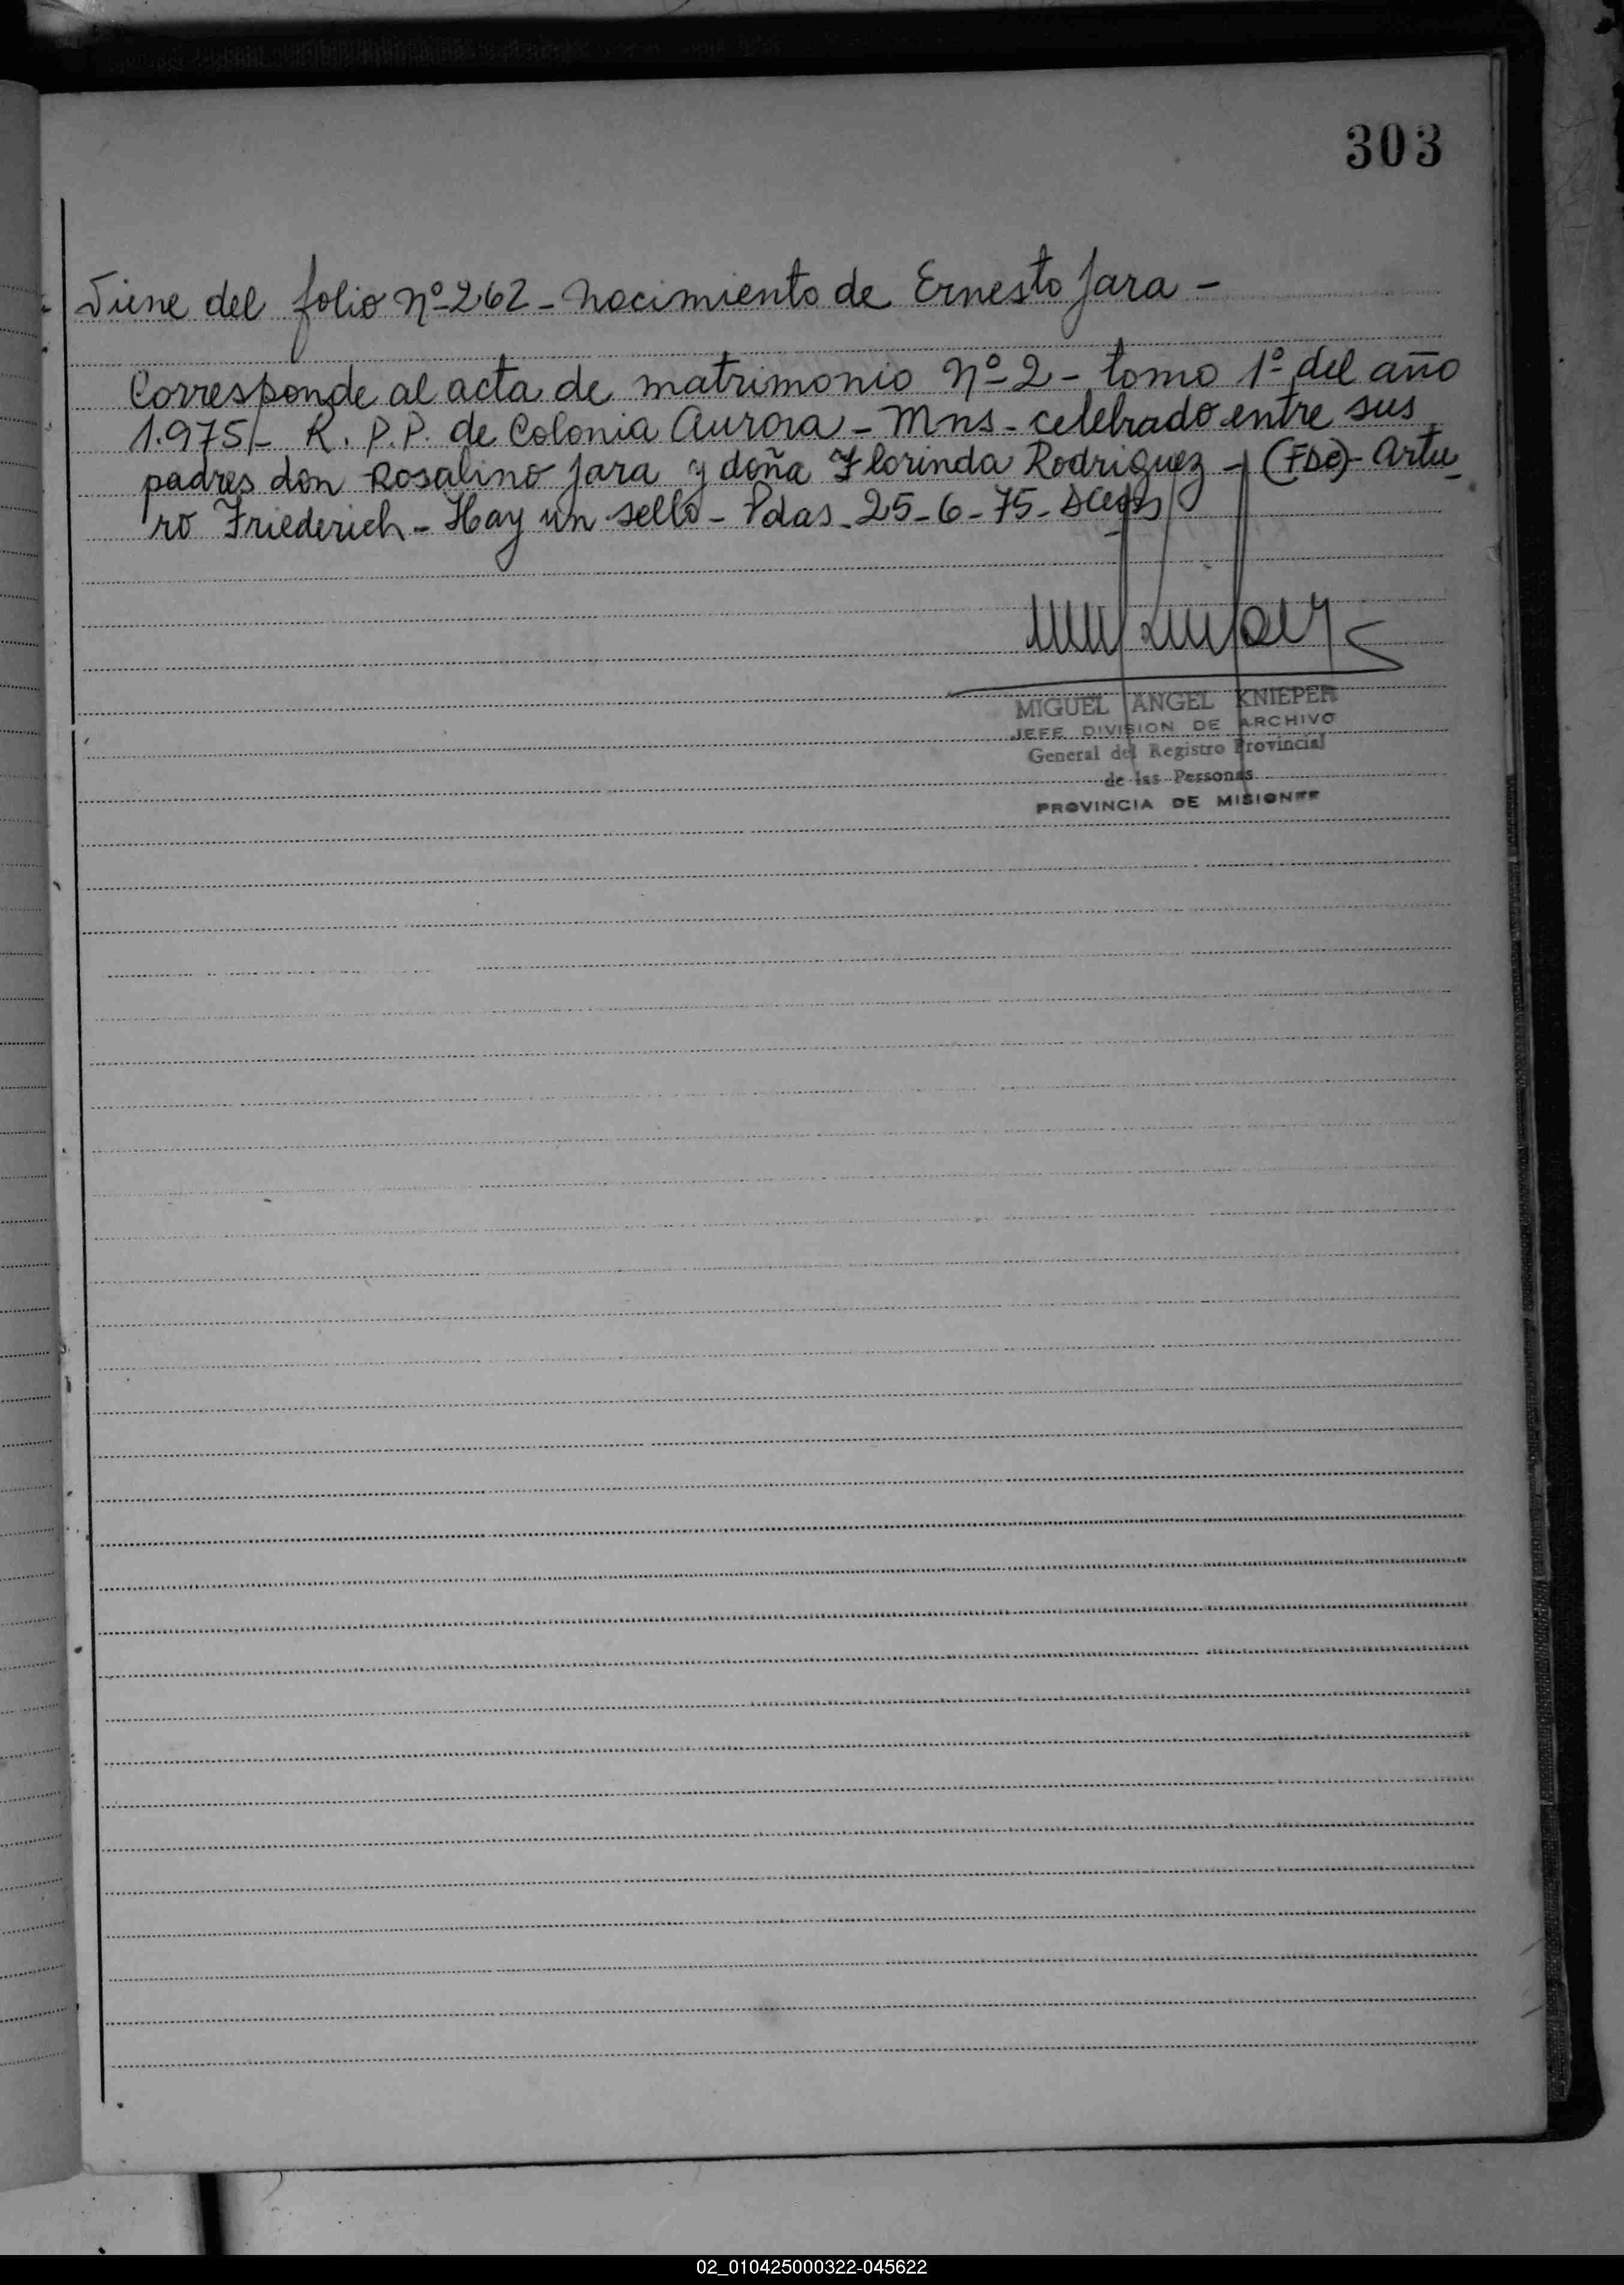 303
Viene del folio Nº 262 - Nacimiento de Ernesto Jara -
Corresponde al acta de matrimonio Nº 2 - tomo 1º del año
1.975/- R. P.P. de Colonia Aurora - Mns - celebrado entre sus
padres don Rosalino Jara y doña Florinda Rodriguez - (FDO)- Artu
ro Friederich - Hay un sello - Pdas - 25-6-75-
MIGUEL ANGEL KNIEPER
JEFE DIVISION DE ARCHIVO
General del Registro Provincial
de las Personas
PROVINCIA DE MISIONES
02_010425000322-045622